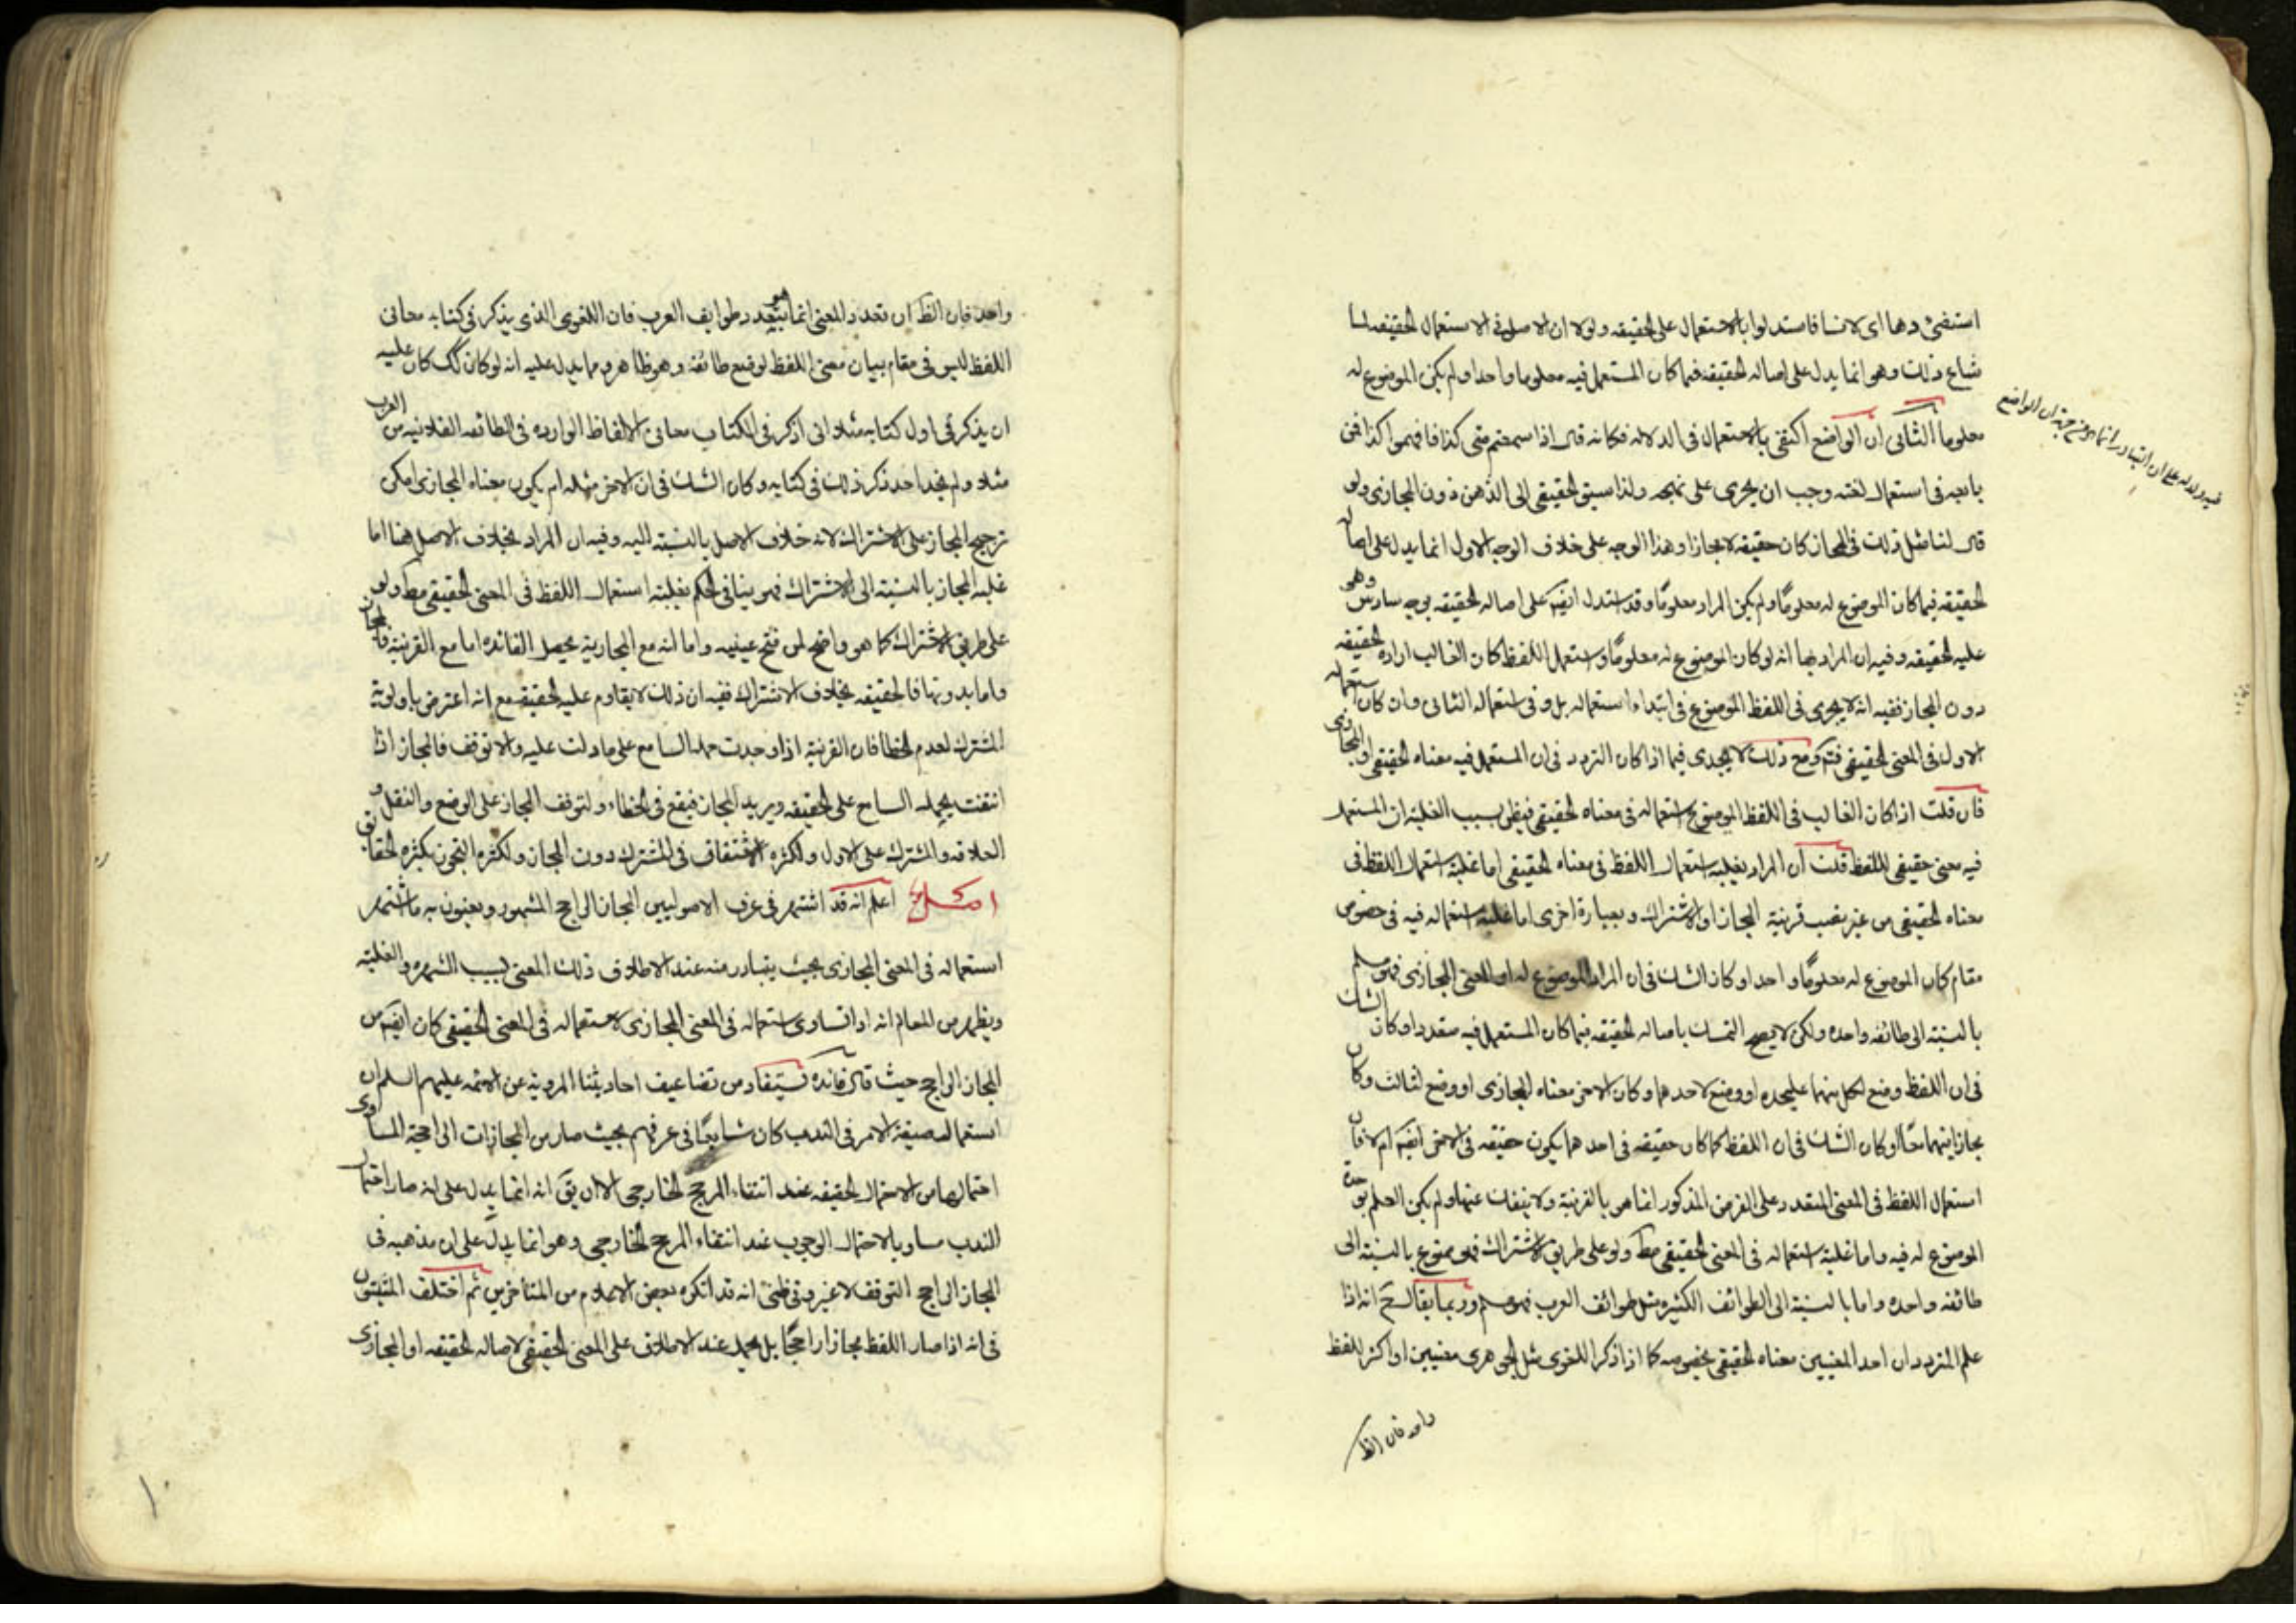 استفئ دها اى لانسا فاستدلوا بالاستعمال على الحقيقه ولولا ان الاصل فى الاستعمال الحقيقه لما
شاع ذلك وهو انما يدل على اصاله الحقيقه فيما كان المستعمل فيه معلوما واحدا ولم يكن الموضوع له
معلوما الثانى ان الواضع اكتفى بالاستعمال فى الدلاله فكانه قال اذا سمعتم منى كذا فافهموا كذا فمن
بابعه فى استعمال لغته وجب ان يجرى على نهجه ولذا سبق الحقيقى الى الذهن دون المجازى ولو
قال لنا مثل ذلك فى المجاز كان حقيقه لا مجازا وهذا الوجه على خلاف الوجه الاول انما يدل على اصاله
الحقيقه فيما كان الموضوع له معلومًا ولم يكن المراد معلومًا وقد استدل ايضا على اصاله الحقيقه بوجه سادس وهو
عليه الحقيقه وفيه ان المراد بها انه لو كان الموضوع له معلومًا واستعمل اللفظ كان الغالب اراده الحقيقه
دون المجاز ففيه انه لا يجرى فى اللفظ الموضوع فى ابتداء استعماله بل وفى استعماله الثانى وان كان استعماله
الاول فى المعنى الحقيقى فتم ومع ذلك لا يجدى فيما اذا كان التردد فى ان المستعمل فيه معناه الحقيقى او المجازى
فان قلت اذا كان الغالب فى اللفظ الموضوع استعماله فى معناه الحقيقى فيظن بسبب الغلبة ان المستعمل
فيه معنى حقيقى للفظ قلت ان المراد بغلبه استعمال اللفظ فى معناه الحقيقى اما غلبة استعمال اللفظ فى
معناه الحقيقى من غير نصب قرينة المجاز او الاشتراك وبعبارة اخرى اما غلبة استعماله فيه فى خصوص
مقام كان الموضوع له معلومًا واحدا وكان الشك فى ان المراد الموضوع له او المعنى المجازى فهو مسلم
بالنسبة الى طائفه واحده ولكن لا يصح التمسك باصاله الحقيقه فيما كان المستعمل فيه متعددا وكان الشك
فى ان اللفظ وضع لكل منهما عليحده او وضع لاحدهما وكان الاخر معناه المجازى او وضع لثالث وكان
مجازا فيهما معًا او كان الشك فى ان اللفظ كما كان حقيقه فى احدهما يكون حقيقه فى الاخر ايضا ام لا فان
استعمال اللفظ فى المعنى المتعدد على الفرض المذكور انما هو بالقرينة ولا ينفك عنها ولم يكن العلم بوحدة
الموضوع له فيه واما غلبة استعماله فى المعنى الحقيقى مط ولو على طريق الاشتراك فهو ممنوع بالنسبة الى
طائفه واحده واما بالنسبة الى الطوائف الكثيره مثل طوائف العرب فهو مسلم وربما يقال ح انه اذا
علم المتردد ان احد المعنيين معناه الحقيقى بخصوصه كما اذا ذكر اللغوى مثل الجوهرى معنيين او اكثر للفظ
واحد فان الظ
واحد فان الظ ان تعدد المعنى انما هو بتعدد طوايف العرب فان اللغوى الذى يذكر فى كتابه معانى
اللفظ ليس فى مقام بيان معنى اللفظ لوضع طائفة وهو ظاهر ومما يدل عليه انه لو كان كك كان عليه
ان يذكر فى اول كتابه مثلا انى اذكر فى الكتاب معانى الالفاظ الوارده فى الطائفه الفلانيه من العرب
مثلا ولم نجد احد ذكر ذلك فى كتابه وكان الشك فى ان الاخر مثله ام يكون معناه المجازى امكن
ترجيح المجاز على الاشتراك لانه خلاف الاصل بالنسبة اليه وفيه ان المراد بخلاف الاصل هنا اما
غلبه المجاز بالنسبة الى الاشتراك فهو ينافى الحكم بغلبة استعمال اللفظ فى المعنى الحقيقى مط ولو
على طريق الاشتراك كما هو واضح لمن فتح عينيه واما انه مع المجازية يحصل الفائده اما مع القرينة فالمجاز
واما بدونها فالحقيقه بخلاف الاشتراك ففيه ان ذلك لا يقاوم عليه الحقيقه مع انه اعترض باولوية
المشترك لعدم الخطا فان القرينة اذا وجدت حمله السامع على ما دلت عليه والا توقف فالمجاز اذا
انتفت يحمله السامع على الحقيقه ويريد المجاز فيقع فى الخطاء ولتوقف المجاز على الوضع والنقل و
العلاقه والمشترك على الاول ولكثره الاشتقاق فى المشترك دون المجاز ولكثره التجوز بكثره الحقايق
اعلم انه قد اشتهر فى عرف الاصوليين المجاز الراجح المشهور ويعنون به ما اشتهر
استعماله فى المعنى المجازى بحيث يتبادر منه عند الاطلاق ذلك المعنى بسبب الشهره والغلبة
ويظهر من المعالم انه اذا تساوى استعماله فى المعنى المجازى لاستعماله فى المعنى الحقيقى كان ايضا من
المجاز الراجح حيث قال فائده يستفاد من تضاعيف احاديثنا المروية عن الائمه عليهم السلم ان
استعمال صيغة الامر فى الندب كان شايعًا فى عرفهم بحيث صار من المجازات الراجحة المساوى
احتمالها من الاحتمال الحقيقه عند انتفاء المرجح الخارجى الا ان يق انه انما يدل على انه صار احتمال
الندب مساويا لاحتمال الوجوب عند انتفاء المرجح الخارجى وهو انما يدل على ان مذهبه فى
المجاز الراجح التوقف لا غير وفى ظنى انه قد انكره بعض الاعلام من المتاخرين ثم اختلف المثبتون
فى انه اذا صار اللفظ مجازا راجحًا بل يحمل عند الاطلاق على المعنى الحقيقى لاصاله الحقيقه او المجازى
١٠